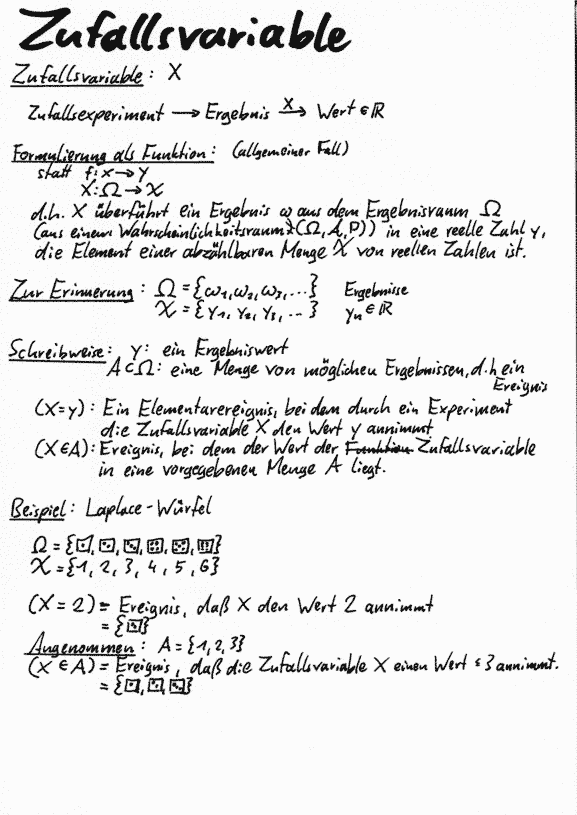 Zufallsvariable
Zufallsvariable: X
Zufallsexperiment → Ergebnis →X Wert ∈ ℝ
Formulierung als Funktion: (allgemeiner Fall)
statt f: x → y
X: Ω → 𝒳
d.h. X überführt ein Ergebnis ω aus dem Ergebnisraum Ω
(aus einem Wahrscheinlichkeitsraum (Ω, A, P)) in eine reelle Zahl y,
die Element einer abzählbaren Menge 𝒳 von reellen Zahlen ist.
Zur Erinnerung: Ω = {ω₁, ω₂, ω₃, ...} Ergebnisse
𝒳 = {y₁, y₂, y₃, ...} yₙ ∈ ℝ
Schreibweise: y: ein Ergebniswert
A ⊂ Ω: eine Menge von möglichen Ergebnissen, d.h ein
Ereignis
(X=y): Ein Elementarereignis, bei dem durch ein Experiment
die Zufallsvariable X den Wert y annimmt
(X∈A): Ereignis, bei dem der Wert der Funktion Zufallsvariable
in eine vorgegebenen Menge A liegt.
Beispiel: Laplace-Würfel
Ω = {⚀, ⚁, ⚂, ⚃, ⚄, ⚅}
𝒳 = {1, 2, 3, 4, 5, 6}
(X = 2) = Ereignis, daß X den Wert 2 annimmt
= {⚁}
Angenommen: A = {1, 2, 3}
(X ∈ A) = Ereignis, daß die Zufallsvariable X einen Wert ≤ 3 annimmt.
= {⚀, ⚁, ⚂}